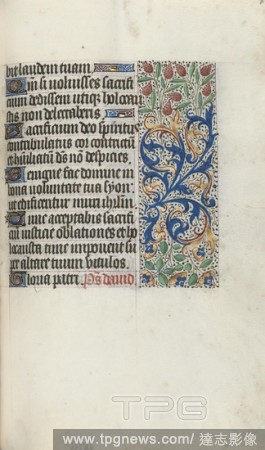 bit laudem tuam.
Qm̄ si voluisses sacrifi
cium dedissem utiqꝫ holocau
stis non delectaberis
Sacrificium deo spiritus
contribulatus cor contritū
et humiliatū dn̄s nō despicies.
Benigne fac domine in
bona voluntate tua syon
ut edificentur muri ihrlm̄
Tunc acceptabis sacrifi
cium iusticie oblationes et ho
locausta tunc imponent su
per altare tuum vitulos.
Gloria patri. Ps david.
TPG
www.tpgnews.com / 達志影像